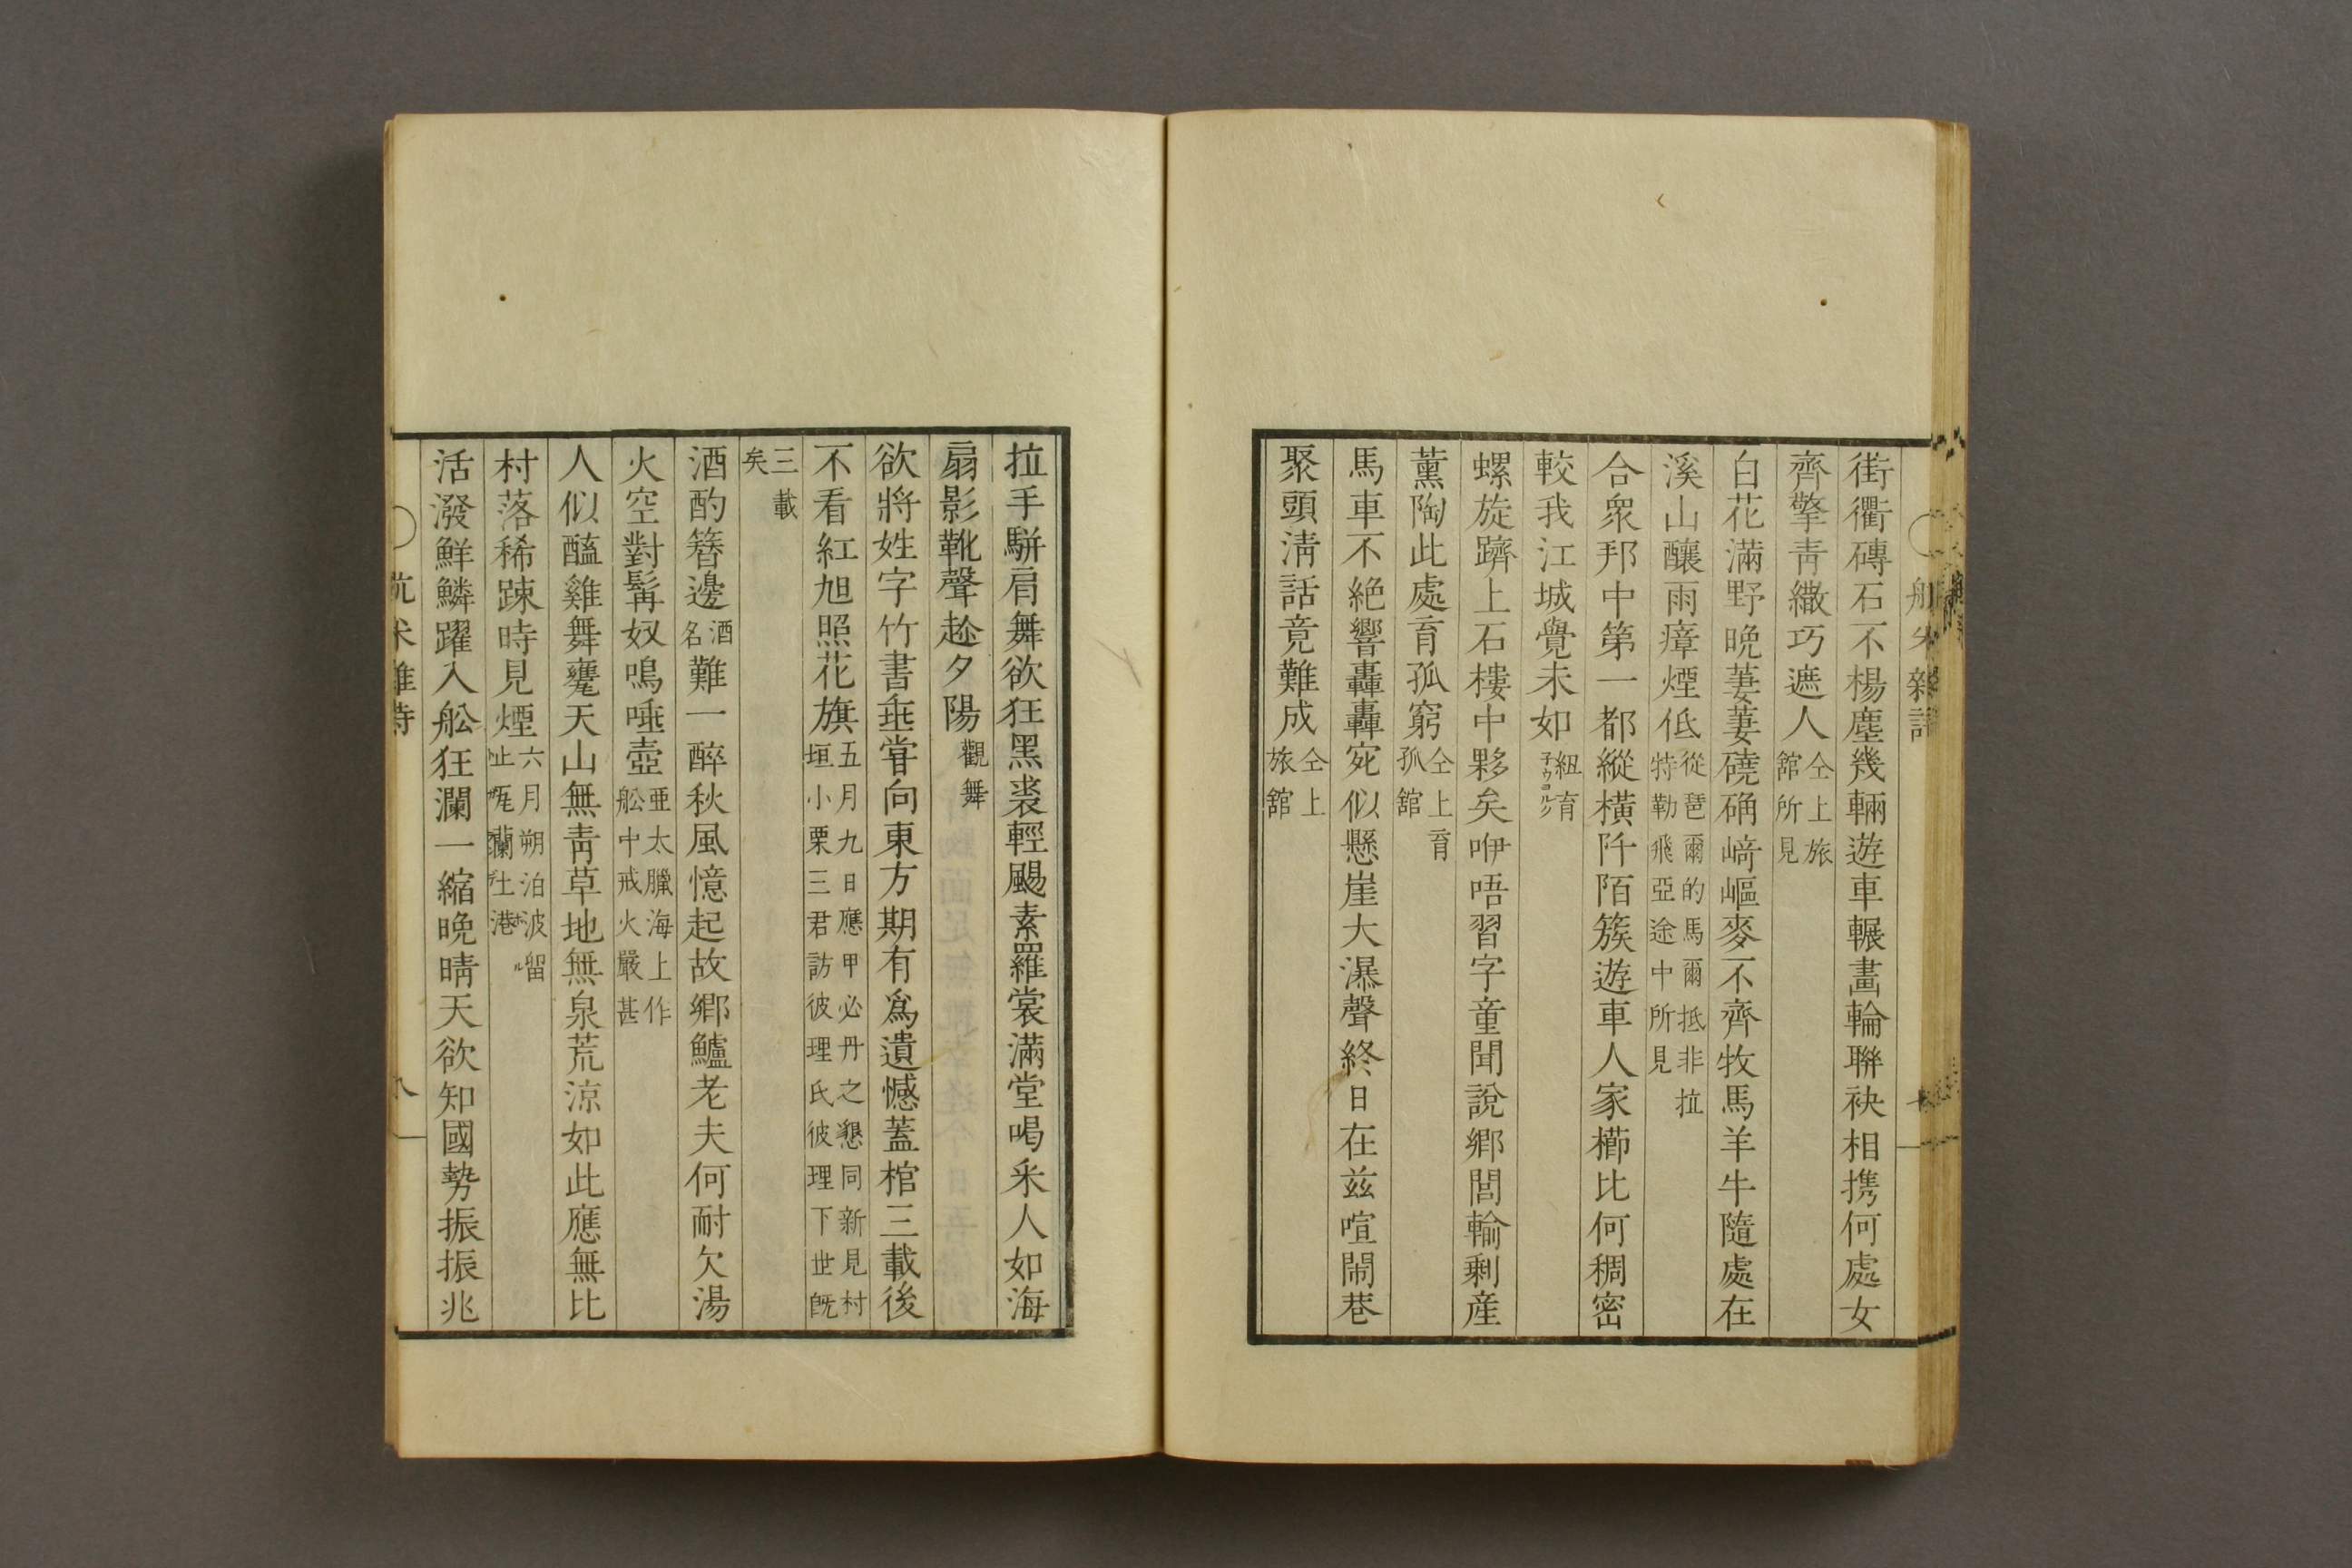 街衢磚石不楊塵幾輛遊車輾畵輪聯袂相携何處女
齊擎靑繖巧遮人仝上旅館所見
白花滿野晩萋萋磽确﨑嶇麥不齊牧馬羊牛隨處在
溪山釀雨瘴煙低從琶爾的馬爾抵非拉特勒飛亞途中所見
合衆邦中第一都縱橫阡陌簇遊車人家櫛比何稠密
較我江城覺未如紐育
螺旋躋上石樓中夥矣咿唔習字童聞說鄕閭輸剩産
薰陶此處育孤窮仝上育孤舘
馬車不絶響轟轟宛似懸崖大瀑聲終日在兹喧鬧巷
聚頭淸話竟難成仝上旅舘
拉手駢肩舞欲狂黑裘輕颺素羅裳滿堂喝采人如海
扇影靴聲趁夕陽觀舞
欲將姓字竹書垂甞向東方期有爲遺憾蓋棺三載後
不看紅旭照花旗五月九日應甲必丹之懇同新見村垣小栗三君訪彼理氏彼理下世旣
三載矣
酒酌簪邊酒名難一醉秋風憶起故鄕鱸老夫何耐欠湯
火空對髯奴鳴唾壺亜太臘海上作舩中戒火嚴甚
人似醯雞舞甕天山無靑草地無泉荒凉如此應無比
村落稀踈時見煙六月朔泊波留址瓦蘭土港
活潑鮮鱗躍入舩狂瀾一縮晩晴天欲知國勢振振兆